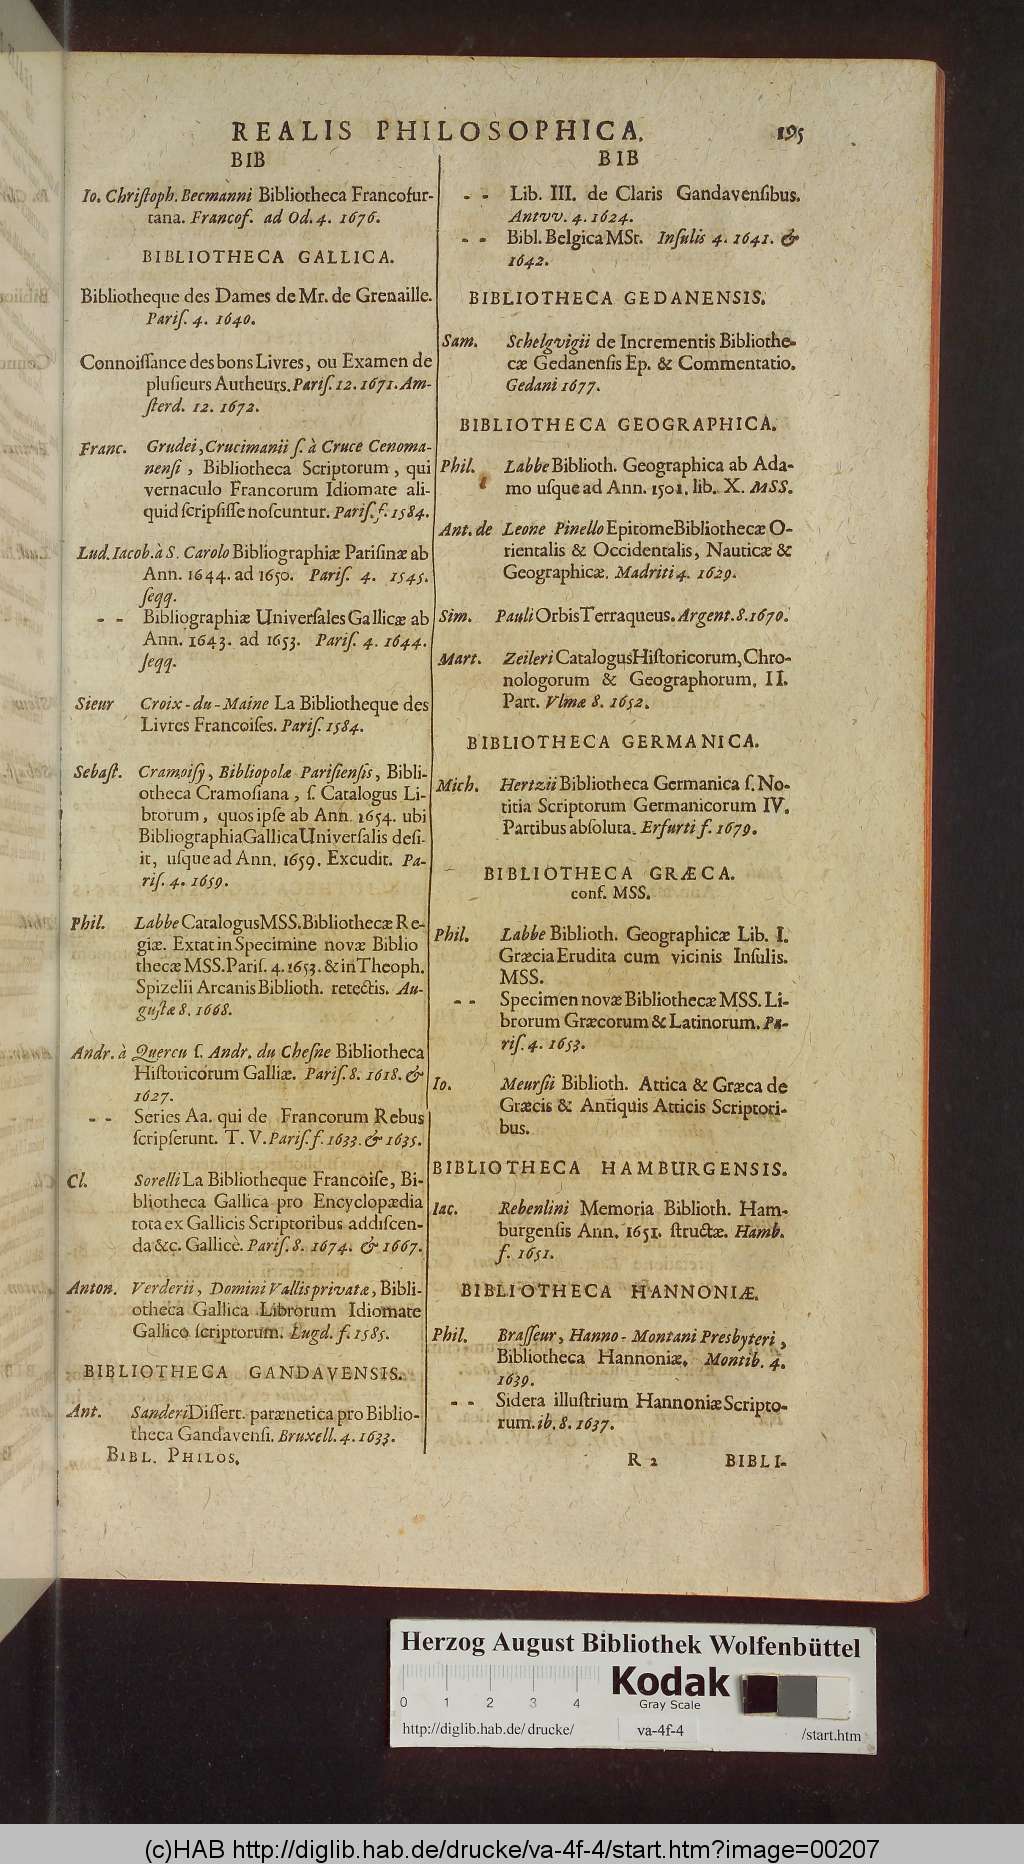 REALIS PHILOSOPHICA. 195
BIB
Io. Chriſtoph. Becmanni Bibliotheca Francofur-
tana. Francof. ad Od. 4. 1676.
BIBLIOTHECA GALLICA.
Bibliotheque des Dames de Mr. de Grenaille.
Pariſ. 4. 1640.
Connoiſſance des bons Livres, ou Examen de
pluſieurs Autheurs. Pariſ. 12. 1671. Am-
ſterd. 12. 1672.
Franc. Grudei, Crucimanii ſ. à Cruce Cenoma-
nenſi, Bibliotheca Scriptorum, qui
vernaculo Francorum Idiomate ali-
quid ſcripſiſſe noſcuntur. Pariſ. f. 1584.
Lud. Iacob. à S. Carolo Bibliographiæ Pariſinæ ab
Ann. 1644. ad 1650. Pariſ. 4. 1545.
ſeqq.
- - Bibliographiæ Univerſales Gallicæ ab
Ann. 1643. ad 1653. Pariſ. 4. 1644.
ſeqq.
Sieur Croix-du-Maine La Bibliotheque des
Livres Francoiſes. Pariſ. 1584.
Sebaſt. Cramoiſy, Bibliopolæ Pariſienſis, Bibli-
otheca Cramoſiana, ſ. Catalogus Li-
brorum, quos ipſe ab Ann. 1654. ubi
Bibliographia Gallica Univerſalis deſi-
it, uſque ad Ann. 1659. Excudit. Pa-
riſ. 4. 1659.
Phil. Labbe Catalogus MSS. Bibliothecæ Re-
giæ. Extat in Specimine novæ Biblio
thecæ MSS. Pariſ. 4. 1653. & in Theoph.
Spizelii Arcanis Biblioth. retectis. Au-
guſtæ 8. 1668.
Andr. à Quercu ſ. Andr. du Cheſne Bibliotheca
Hiſtoricorum Galliæ. Pariſ. 8. 1618. &
1627.
- - Series Aa. qui de Francorum Rebus
ſcripſerunt. T. V. Pariſ. f. 1633. & 1635.
Cl. Sorelli La Bibliotheque Francoiſe, Bi-
bliotheca Gallica pro Encyclopædia
tota ex Gallicis Scriptoribus addiſcen-
da &c. Gallicè. Pariſ. 8. 1674. & 1667.
Anton. Verderii, Domini Vallisprivatæ, Bibli-
otheca Gallica Librorum Idiomate
Gallico ſcriptorum. Lugd. f. 1585.
BIBLIOTHECA GANDAVENSIS.
Ant. Sanderi Diſſert. parænetica pro Biblio-
theca Gandavenſi. Bruxell. 4. 1633.
BIBL. PHILOS.
BIB
- - Lib. III. de Claris Gandavenſibus.
Antvv. 4. 1624.
- - Bibl. Belgica MSt. Inſulis 4. 1641. &
1642.
BIBLIOTHECA GEDANENSIS.
Sam. Schelgvigii de Incrementis Bibliothe-
cæ Gedanenſis Ep. & Commentatio.
Gedani 1677.
BIBLIOTHECA GEOGRAPHICA.
Phil. Labbe Biblioth. Geographica ab Ada-
mo uſque ad Ann. 1501. lib. X. MSS.
Ant. de Leone Pinello Epitome Bibliothecæ O-
rientalis & Occidentalis, Nauticæ &
Geographicæ. Madriti 4. 1629.
Sim. Pauli Orbis Terraqueus. Argent. 8. 1670.
Mart. Zeileri Catalogus Hiſtoricorum, Chro-
nologorum & Geographorum. II.
Part. Vlmæ 8. 1652.
BIBLIOTHECA GERMANICA.
Mich. Hertzii Bibliotheca Germanica ſ. No-
titia Scriptorum Germanicorum IV.
Partibus abſoluta. Erfurti f. 1679.
BIBLIOTHECA GRÆCA.
conf. MSS.
Phil. Labbe Biblioth. Geographicæ Lib. I.
Græcia Erudita cum vicinis Inſulis.
MSS.
- - Specimen novæ Bibliothecæ MSS. Li-
brorum Græcorum & Latinorum. Pa-
riſ. 4. 1653.
Io. Meurſii Biblioth. Attica & Græca de
Græcis & Antiquis Atticis Scriptori-
bus.
BIBLIOTHECA HAMBURGENSIS.
Iac. Rebenlini Memoria Biblioth. Ham-
burgenſis Ann. 1651. ſtructæ. Hamb.
f. 1651.
BIBLIOTHECA HANNONIÆ.
Phil. Braſſeur, Hanno-Montani Presbyteri,
Bibliotheca Hannoniæ. Montib. 4.
1639.
- - Sidera illuſtrium Hannoniæ Scripto-
rum. ib. 8. 1637.
R 2 BIBLI-
Herzog August Bibliothek Wolfenbüttel
Kodak
Gray Scale
0 1 2 3 4
http://diglib.hab.de/drucke/ va-4f-4 /start.htm
(c)HAB http://diglib.hab.de/drucke/va-4f-4/start.htm?image=00207